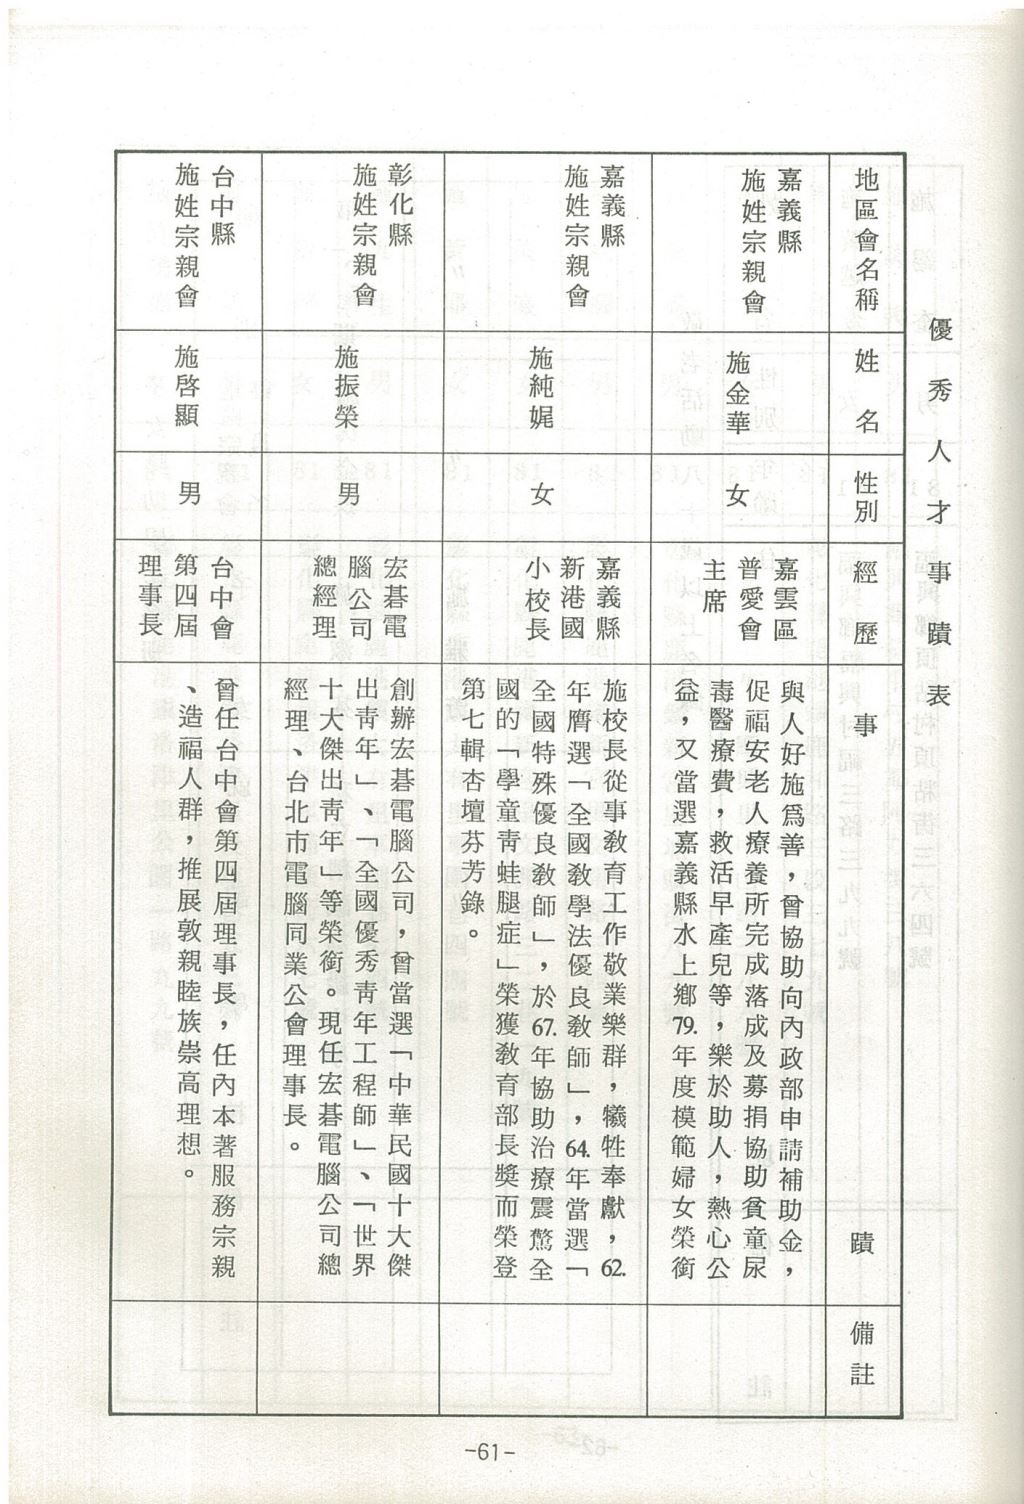 優秀人才事蹟表
地區會名稱
姓名
性別
經歷
事蹟
備註
嘉義縣
施姓宗親會
施金華
女
嘉雲區
普愛會
主席
與人好施爲善，曾協助向內政部申請補助金，
促福安老人療養所完成落成及募捐協助貧童尿
毒醫療費，救活早產兒等，樂於助人，熱心公
益，又當選嘉義縣水上鄉79.年度模範婦女榮銜
嘉義縣
施姓宗親會
施純娓
女
嘉義縣
新港國
小校長
施校長從事教育工作敬業樂群，犧牲奉獻，62.
年膺選「全國教學法優良教師」，64.年當選「
全國特殊優良教師」，於67.年協助治療震驚全
國的「學童靑蛙腿症」榮獲教育部長獎而榮登
第七輯杏壇芬芳錄。
彰化縣
施姓宗親會
施振榮
男
宏碁電
腦公司
總經理
創辦宏碁電腦公司，曾當選「中華民國十大傑
出靑年」、「全國優秀靑年工程師」、「世界
十大傑出靑年」等榮銜。現任宏碁電腦公司總
經理、台北市電腦同業公會理事長。
台中縣
施姓宗親會
施啓顯
男
台中會
第四屆
理事長
曾任台中會第四屆理事長，任內本著服務宗親
、造福人群，推展敦親睦族崇高理想。
-61-